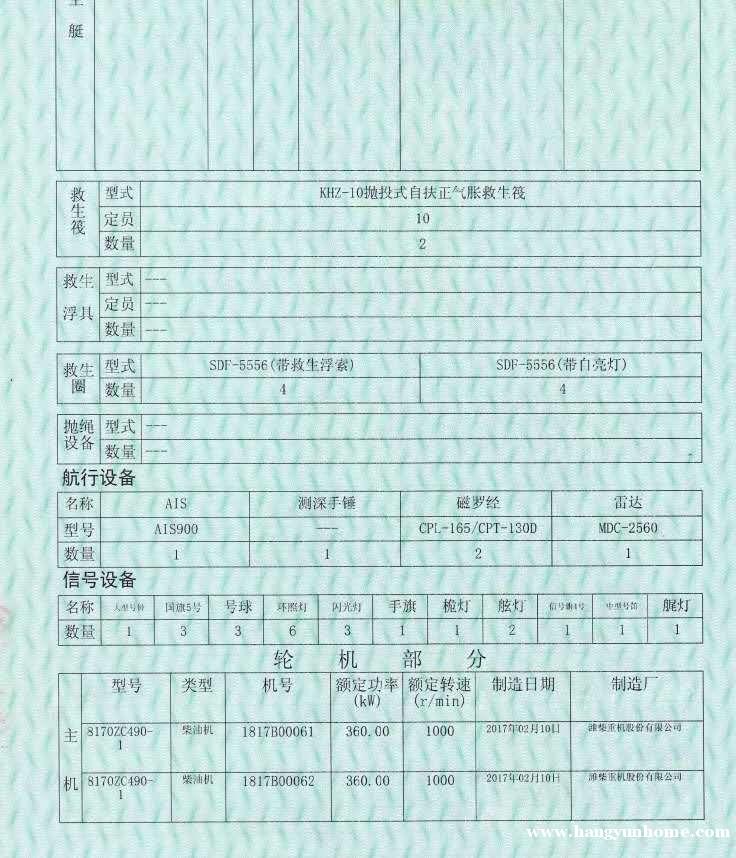 艇
救生筏 型式 KHZ-10抛投式自扶正气胀救生筏
定员 10
数量 2
救生浮具 型式 ---
定员 ---
数量 ---
救生圈 型式 SDF-5556(带救生浮索) SDF-5556(带自亮灯)
数量 4 4
抛绳设备 型式 ---
数量 ---
航行设备
名称 AIS 测深手锤 磁罗经 雷达
型号 AIS900 --- CPL-165/CPT-130D MDC-2560
数量 1 1 2 1
信号设备
名称 大型号钟 国旗5号 号球 环照灯 闪光灯 手旗 桅灯 舷灯 信号旗4号 中型号笛 艉灯
数量 1 3 3 6 3 1 1 2 1 1 1
轮机部分
型号 类型 机号 额定功率(kW) 额定转速(r/min) 制造日期 制造厂
主机 8170ZC490-1 柴油机 1817B00061 360.00 1000 2017年02月10日 潍柴重机股份有限公司
8170ZC490-1 柴油机 1817B00062 360.00 1000 2017年02月10日 潍柴重机股份有限公司
www.hangyunhome.com